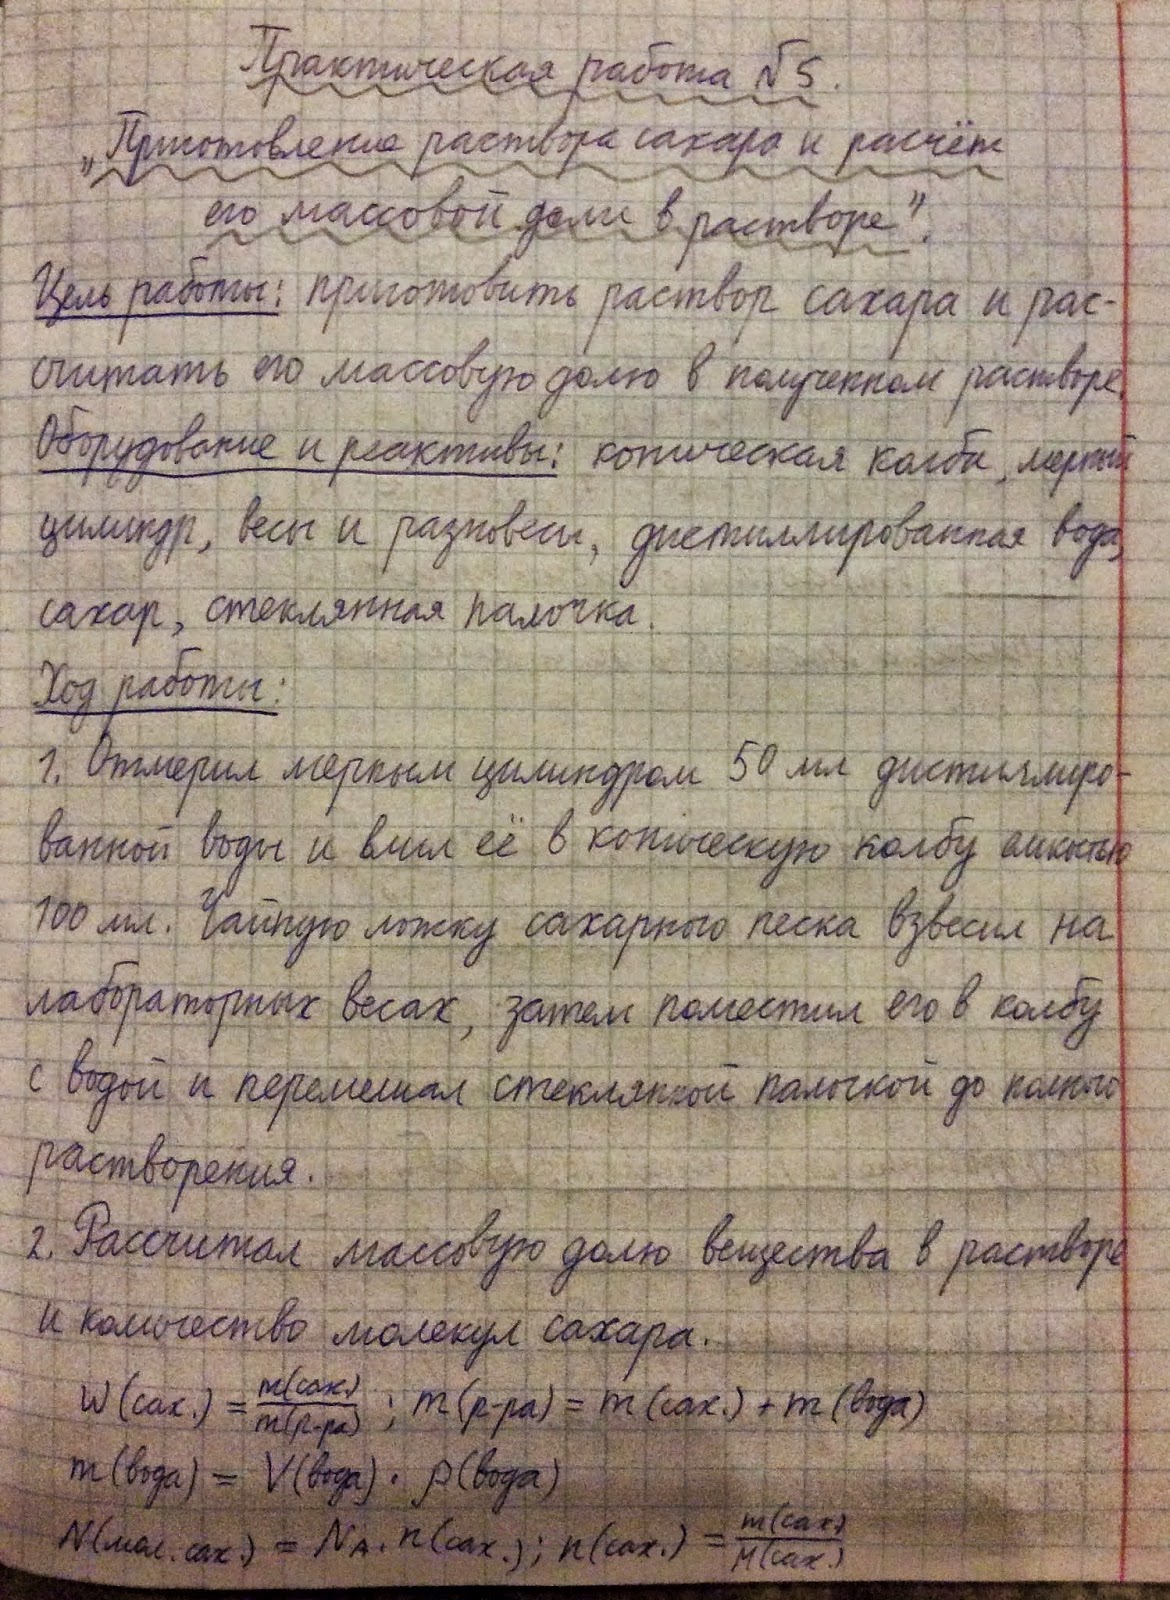 Практическая работа №5.
„Приготовление раствора сахара и расчёт
его массовой доли в растворе".
Цель работы: приготовить раствор сахара и рас-
считать его массовую долю в полученном растворе.
Оборудование и реактивы: коническая колба, мерный
цилиндр, весы и разновесы, дистиллированная вода,
сахар, стеклянная палочка.
Ход работы:
1. Отмерил мерным цилиндром 50 мл дистиллиро-
ванной воды и влил её в коническую колбу емкостью
100 мл. Чайную ложку сахарного песка взвесил на
лабораторных весах, затем поместил его в колбу
с водой и перемешал стеклянной палочкой до полного
растворения.
2. Рассчитал массовую долю вещества в растворе
и количество молекул сахара.
W(сах.) = m(сах.)/m(р-ра) ; m(р-ра) = m(сах.) + m(вода)
m(вода) = V(вода) · ρ(вода)
N(мол. сах.) = NA · n(сах.) ; n(сах.) = m(сах.)/M(сах.)